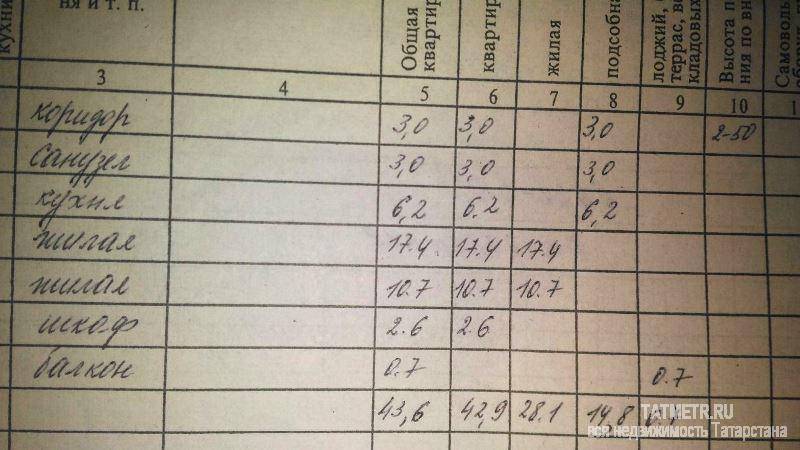 кухни
ня и т. п.
Общая
квартир
квартир
жилая
подсобна
лоджий,
террас, ве
кладовых
Высота п
ния по вн
Самоволь
3 4 5 6 7 8 9 10 1
коридор 3,0 3,0 3,0 2-50
санузел 3,0 3,0 3,0
кухня 6,2 6.2 6,2
жилая 17.4 17.4 17.4
жилая 10.7 10.7 10.7
шкаф 2.6 2.6
балкон 0.7 0.7
43,6 42,9 28.1 14,8
TATMETR.RU
вся недвижимость Татарстана